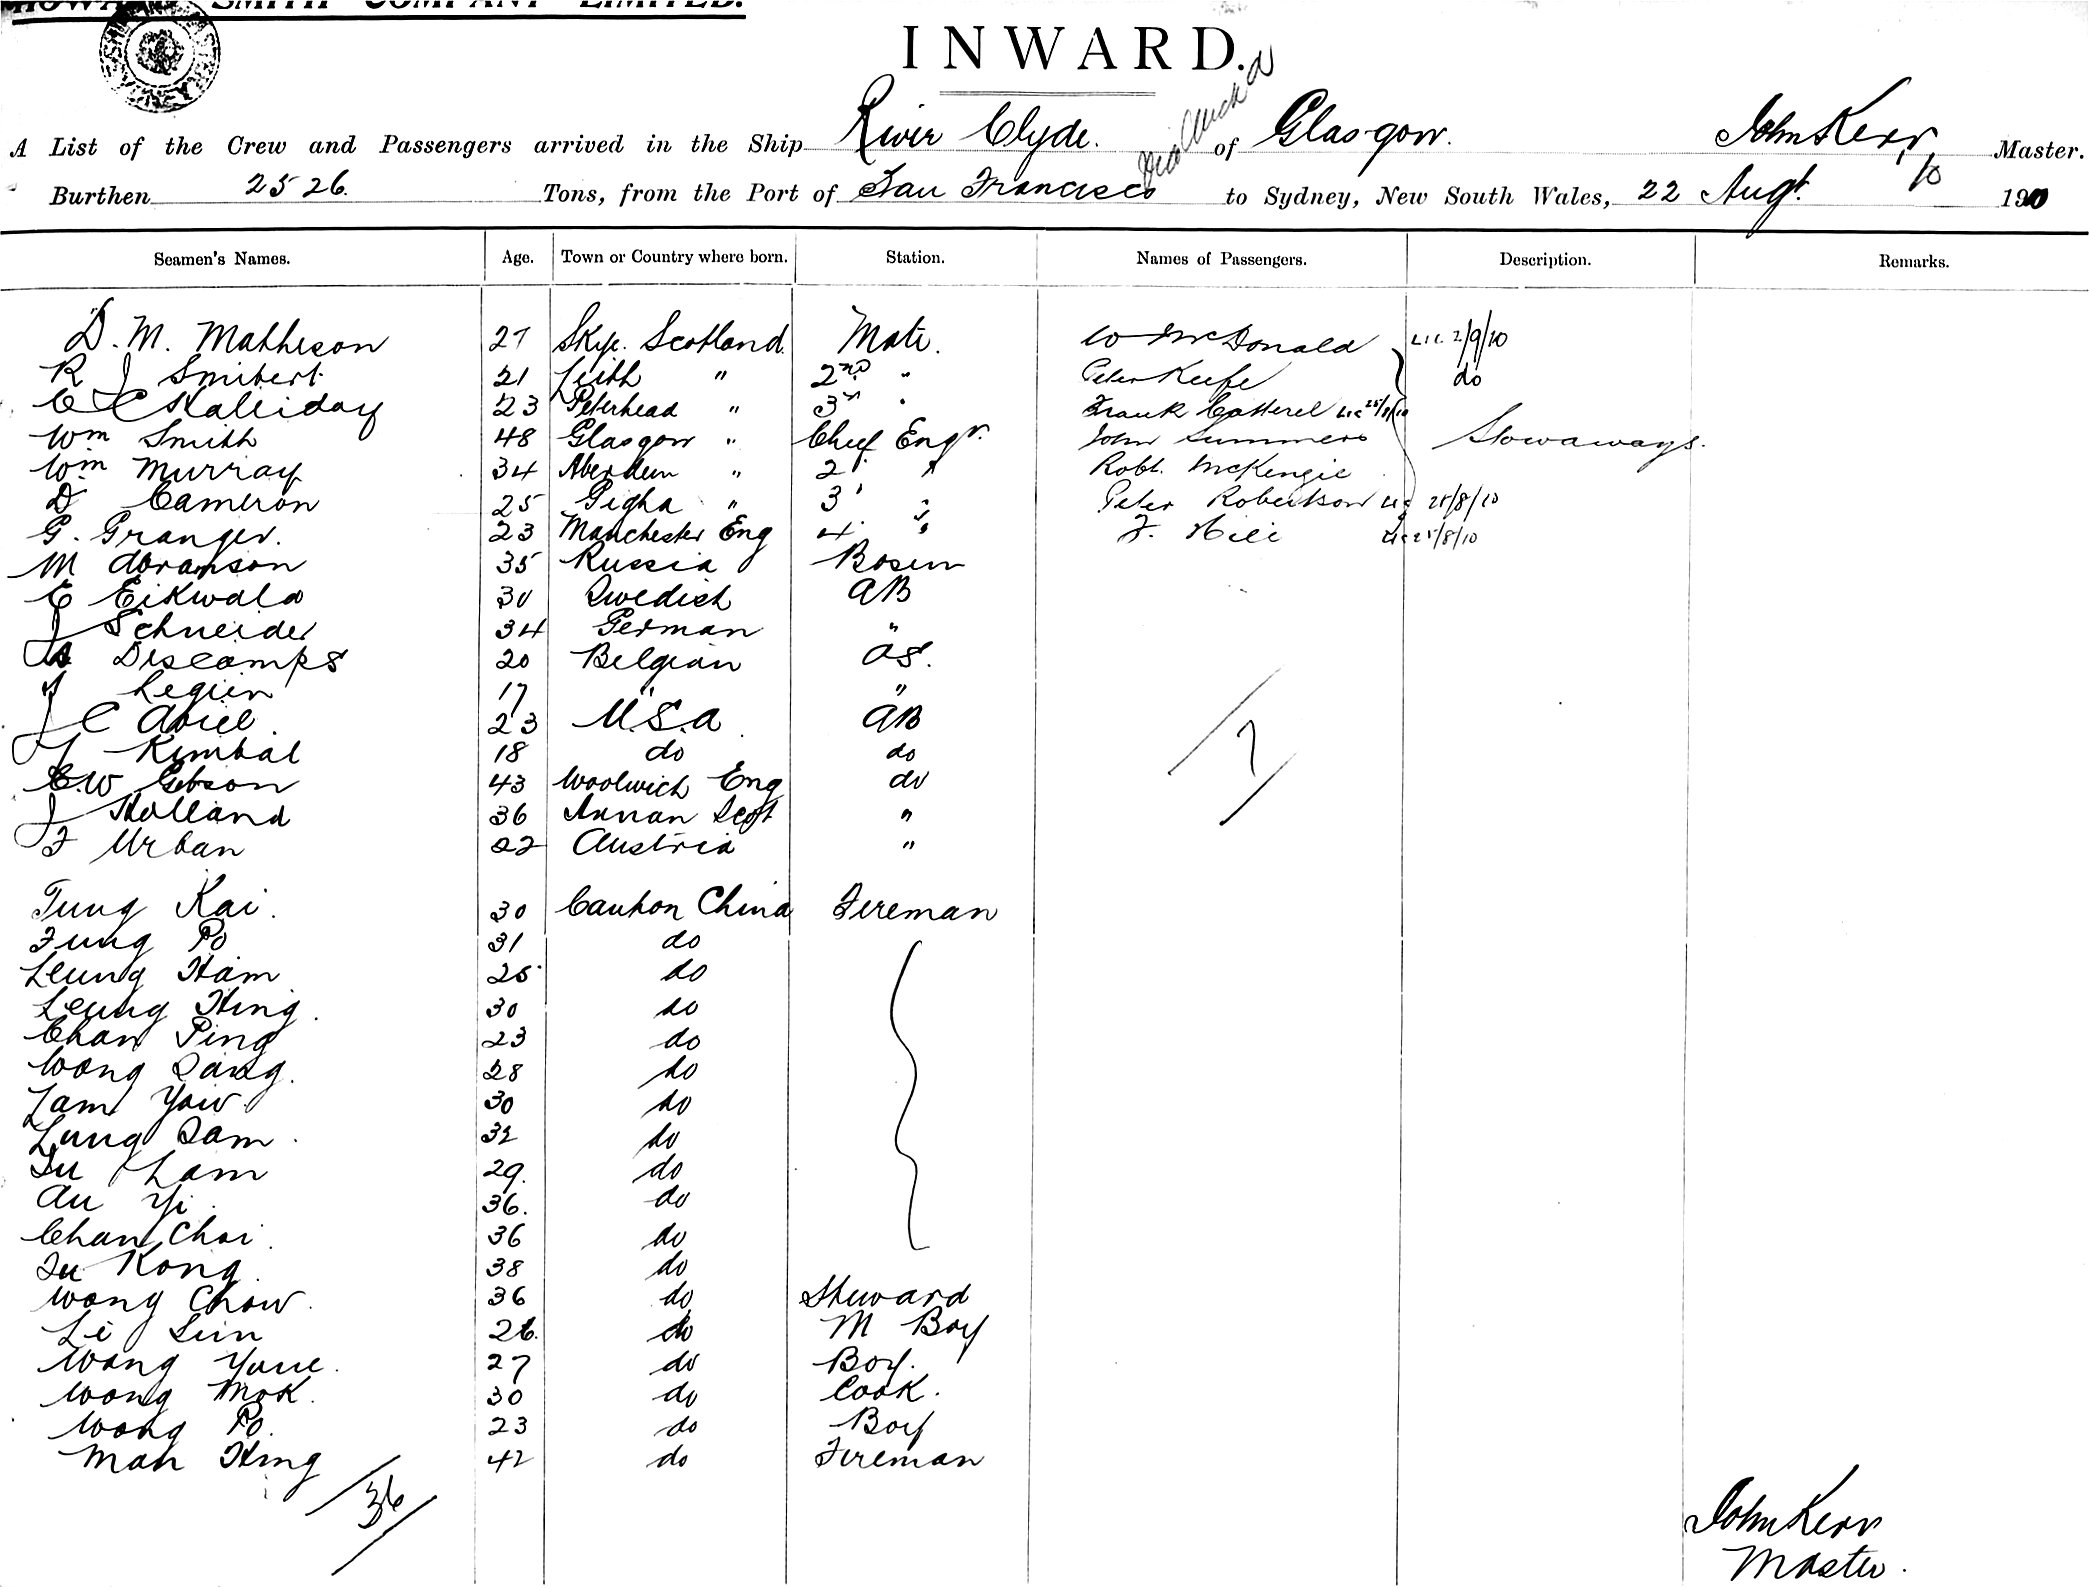 HOWARD SMITH COMPANY LIMITED.
INWARD.
A List of the Crew and Passengers arrived in the Ship River Clyde. of Glasgow. John Kerr, Master.
Burthen 2526. Tons, from the Port of San Francisco via Auckland to Sydney, New South Wales, 22 Augt. 10 190
Seamen's Names. Age. Town or Country where born. Station. Names of Passengers. Description. Remarks.
D. M. Matheson 27 Skye. Scotland. Mate. W McDonald Lic. 2/9/10
R J Smibert 21 Leith " 2nd " Peter Keefe do
C C Halliday 23 Peterhead " 3rd " Frank Cotterel Lic 25/8/10
Wm Smith 48 Glasgow " Chief Engr. John Summers Stowaways.
Wm Murray 34 Aberdeen " 2 " Robt. McKenzie
D Cameron 25 Gigha " 3 " Peter Robertson Lic 25/8/10
G. Granger. 23 Manchester Eng 4 " F. Hill Lic 25/8/10
M Abramson 35 Russia Bosun
C Eikwald 30 Swedish AB
J Schneider 34 German "
Descamps 20 Belgian OS.
Legien 17 " "
J C Abiel 23 U.S.A. AB
J Kimbal 18 do do
C. W Gibson 43 Woolwich Eng do
J Holland 36 Annan Scot "
F Urban 22 Austria "
7
Tung Kai. 30 Canton China Fireman
Fung Po 31 do
Leung Ham 25 do
Leung Hing. 30 do
Chan Ping 23 do
Wong Sang. 28 do
Lam Yow. 30 do
Lung Sam. 32 do
Su Lam 29. do
Au Yi. 36. do
Chan Choi. 36 do
Su Kong. 38 do
Wong Chow. 36 do Steward
Li Sun 26. do M Boy
Wong Youe. 27 do Boy.
Wong Mok. 30 do Cook.
Wong Po. 23 do Boy
Mah Hing 42 do Fireman
36
John Kerr
Master.